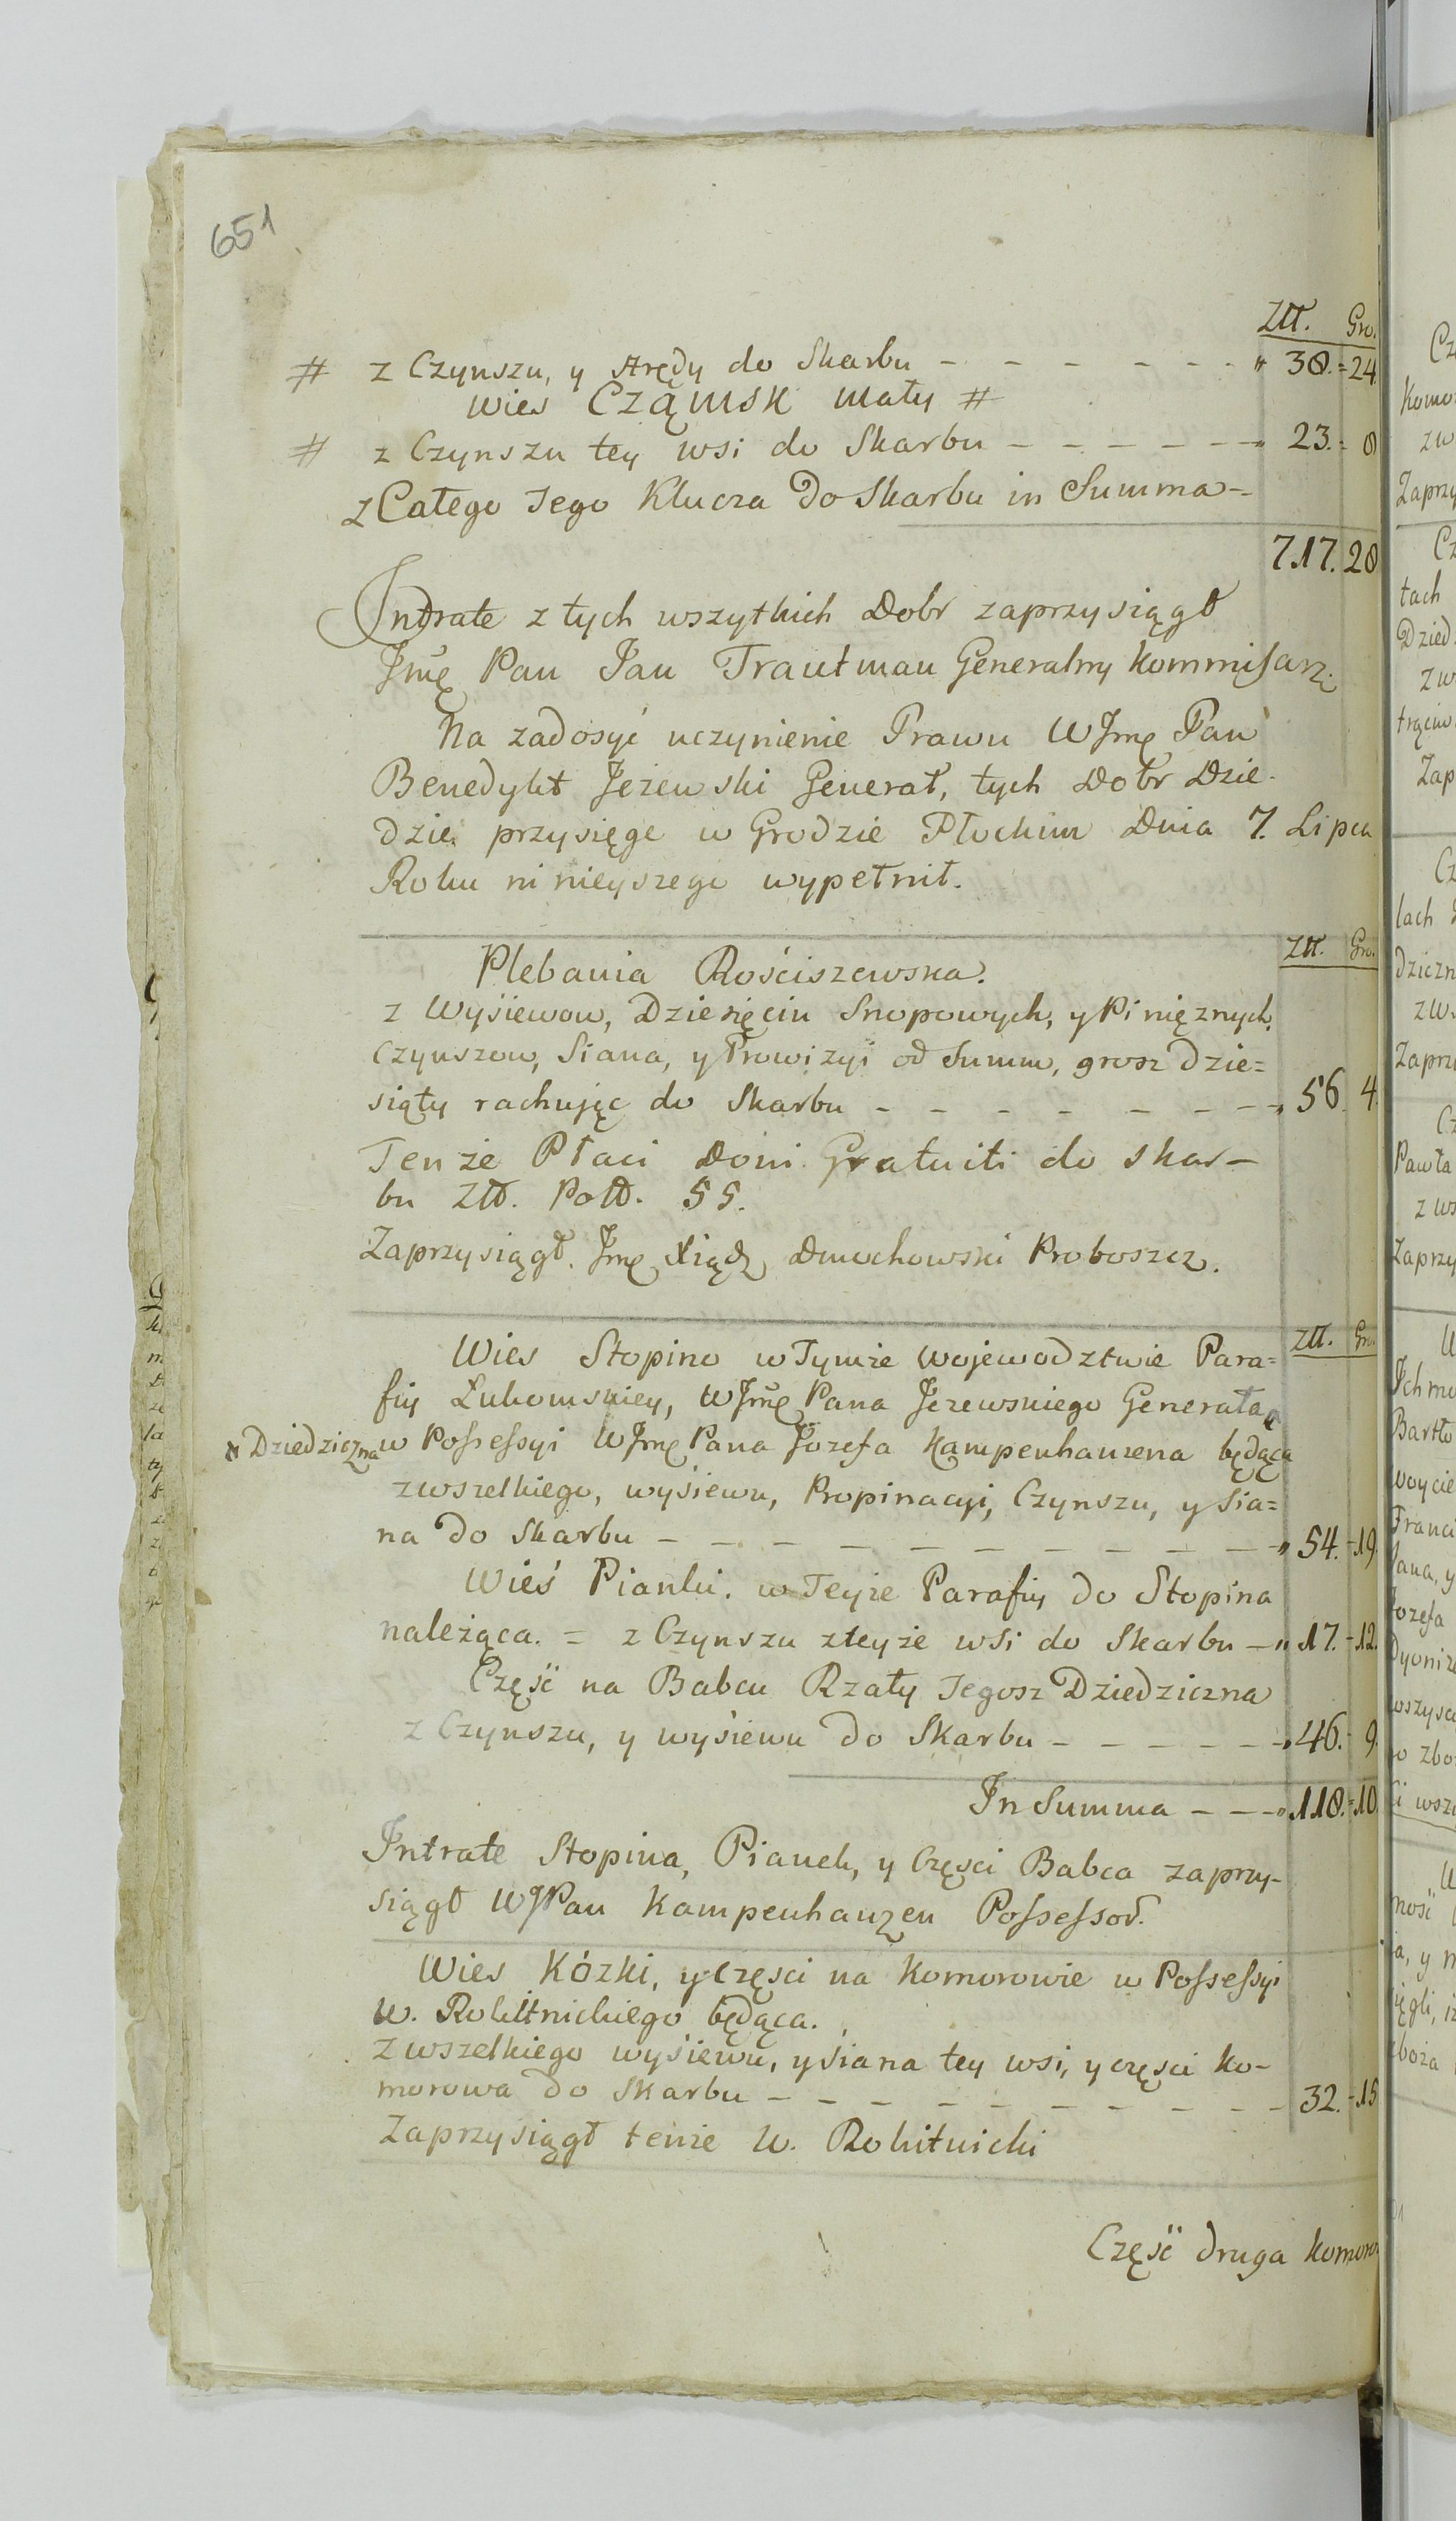 651
Złł. Gro.
# z Czynszu, y Arędy do Skarbu - - - - - - " 38.=24
Wies Cząmsk mały #
# z Czynszu tey wsi do Skarbu - - - - - - " 23.= 8
z Całego Jego Klucza Do Skarbu in Summa -
717. 28
Intrate z tych wszytkich Dobr zaprzysiągł
Jmę Pan Jan Trautman Generalny Kommisarz.
Na zadosyć uczynienie Prawu WJmę Pan
Benedykt Jeżewski Generał, tych Dobr Dzie-
dzic przysięge w Grodzie Płockim Dnia 7. Lipca
Roku ninieyszego wypełnił.
Złł. Gro.
Plebania Rościszewska.
z Wysiewow, Dziesięciu Snopowych, y Pinięznych,
Czynszow, Siana, y Prowizyi od Summ, grosz Dzie=
siąty rachując do Skarbu - - - - - - - " 56. 4.
Tenże Płaci Doni Gratuiti do skar-
bu Złł. Poll. 55.
Zaprzysiągł. Jmę Xiądz Dmochowski Proboszcz.
Złł. Gro.
Wies Stopino w Tymże Wojewodztwie Para=
fiy Łukomskiey, WJmę Pana Jezewskiego Generała
Dziedziczna w Possessyi WJmę Pana Jozefa Kampenhauzena będąca
z wszelkiego, wysiewu, Propinacyi, Czynszu, y Sia=
na do Skarbu - - - - - - - - - - " 54.-19.
Wieś Pianki. w Teyże Parafiy do Stopina
należąca. = z Czynszu z teyże wsi do Skarbu - " 17.-12.
Część na Babcu Rzały Jegosz Dziedziczna
z Czynszu, y wysiewu do Skarbu - - - - - - " 46.- 9.
In Summa - - - " 118.=10.
Intrate Stopina, Pianek, y Częsci Babca zaprzy-
siągł WJPan Kampenhauzen Possessor.
Wies Kózki, y Częsci na Komorowie w Possessyi
W. Rokitnickiego będąca.
z wszelkiego wysiewu, y Siana tey wsi, y częsci Ko-
morowa do Skarbu - - - - - - - - - - 32.-15
Zaprzysiągł tenże W. Rokitnicki
Część druga Komoro